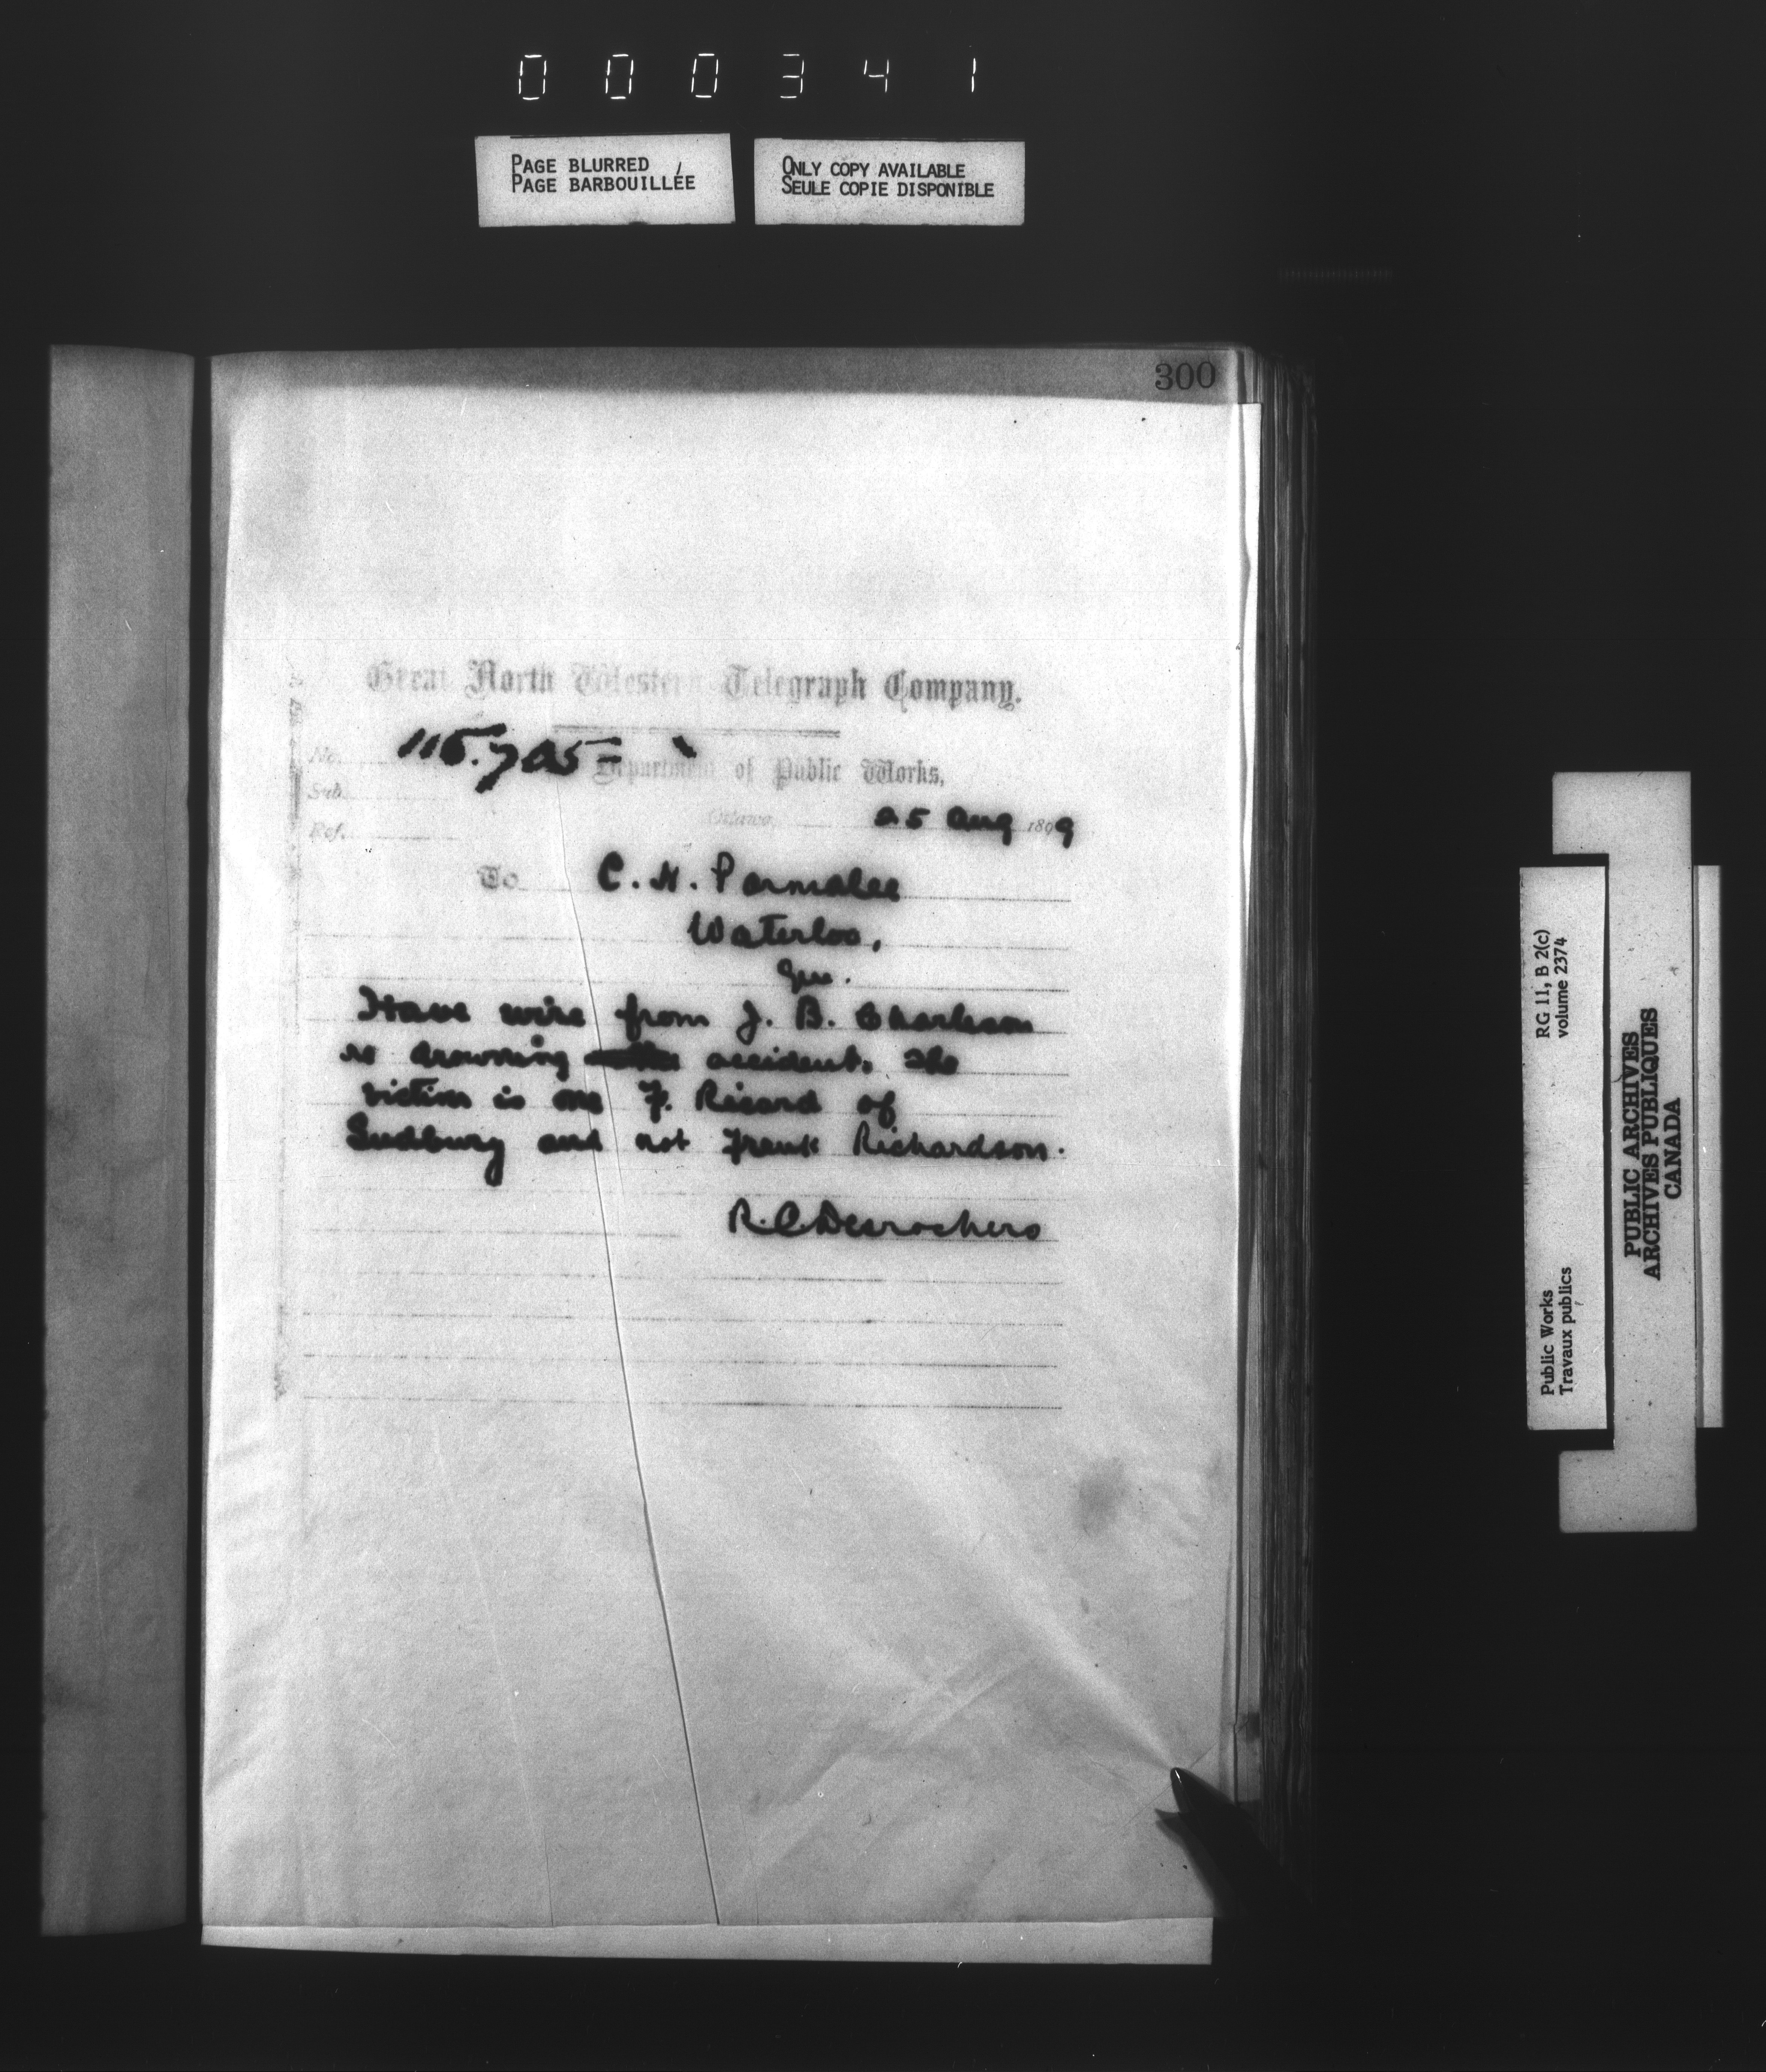 000341
PAGE BLURRED
PAGE BARBOUILLÉE
ONLY COPY AVAILABLE
SEULE COPIE DISPONIBLE
300
Great North Western Telegraph Company.
No. 115.705
Department of Public Works,
Sub.
Ottawa, 25 Aug 1899
Ref.
To C. H. Parmalee
Waterloo,
Que.
Have wire from J. B. Charleson
re drowning accident. The
victim is one F. Ricard of
Sudbury and not Frank Richardson.
R.C. Desrochers
RG 11, B 2(c)
volume 2374
Public Works
Travaux publics
PUBLIC ARCHIVES
ARCHIVES PUBLIQUES
CANADA